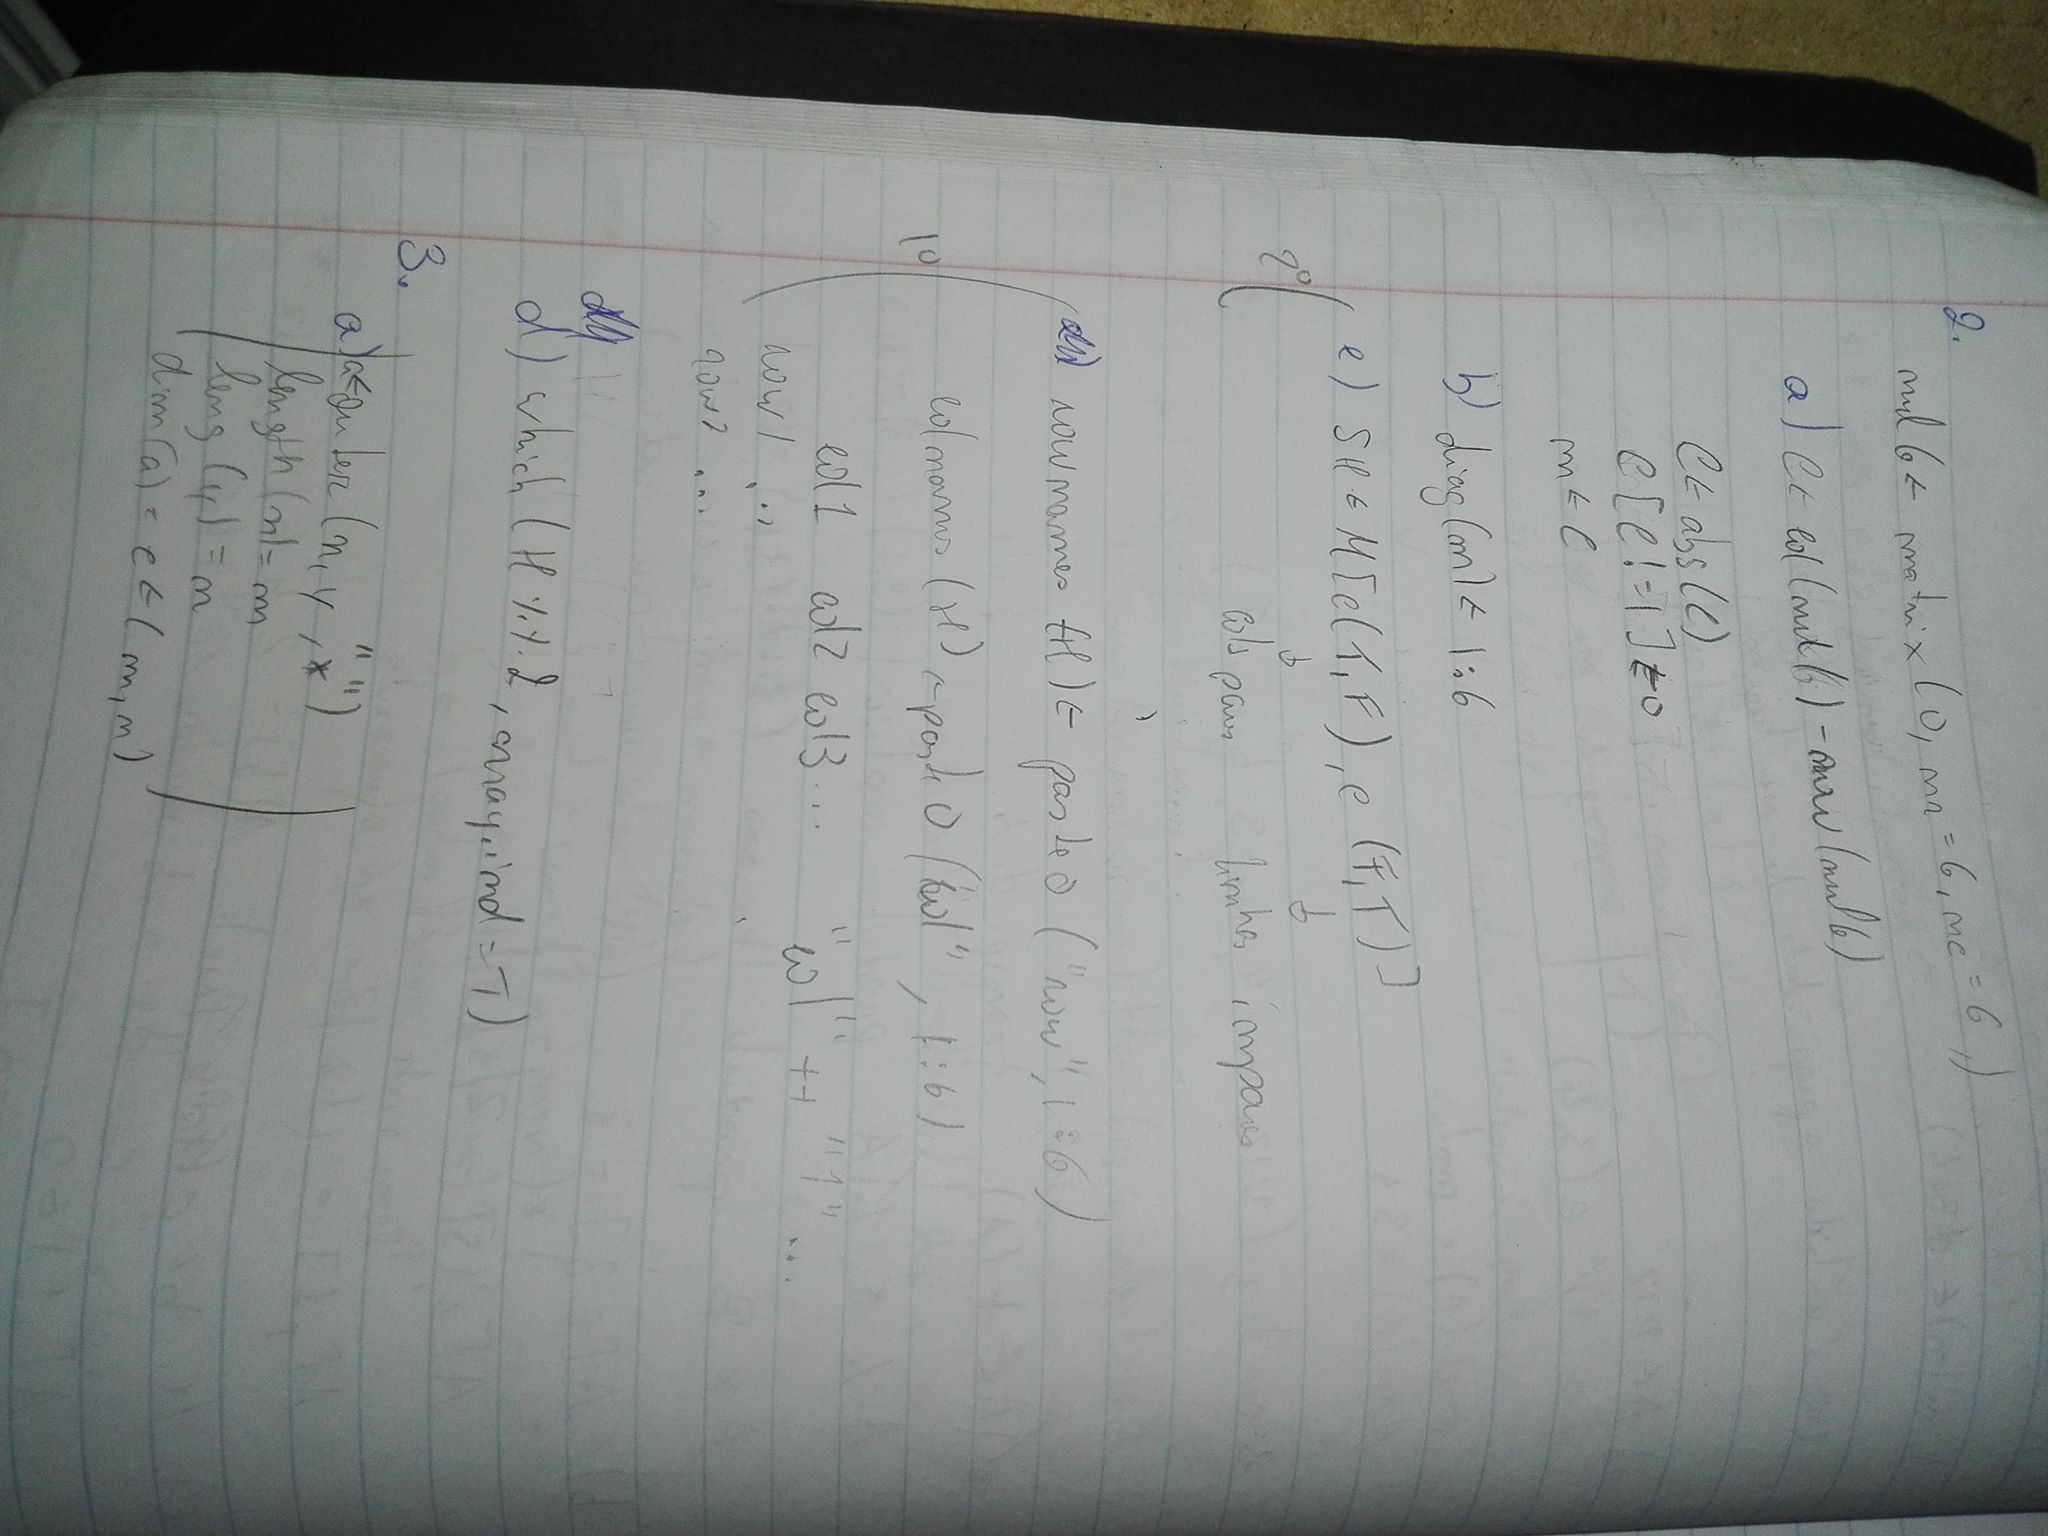 2.
nul6 ← matrix (0, nr = 6, nc = 6,)
a) C ← col(nul6) - row(nul6)
C ← abs(C)
C[C!=1] ← 0
m ← C
b) diag(m) ← 1:6
2º
c) SH ← M[c(T,F), c(F,T)]
cols pares linhas ímpares
rownames (H) ← paste0 ("row", 1:6)
1º
colnames (H) ← paste0 ("col", 1:6)
col1 col2 col3... "col" ++ "1" ...
row1 ...
row2 ...
d) which (H %% 2, array.ind = T)
3.
a) a ← outer (x, y, "*")
length (x) = m
leng (y) = n
dim(a) = c ← (m, n)